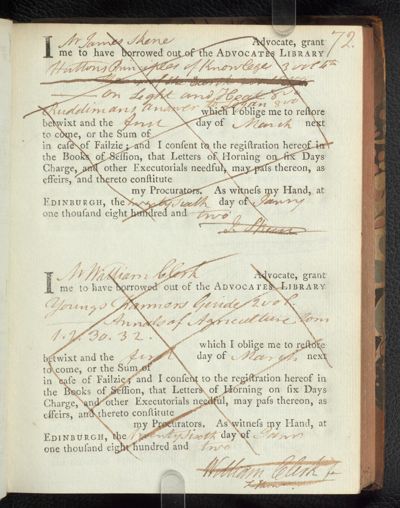 72.
I Mr James Skene Advocate, grant
me to have borrowed out of the ADVOCATES LIBRARY
Huttons Principles of Knowlege 3 vol 4to
on Light and Heat 8vo
Ruddimans answer to Logan 8vo
which I oblige me to restore
betwixt and the first day of March next
to come, or the Sum of
in case of Failzie; and I consent to the registration hereof in
the Books of Session, that Letters of Horning on six Days
Charge, and other Executorials needful, may pass thereon, as
effeirs, and thereto constitute
my Procurators. As witness my Hand, at
EDINBURGH, the twenty sixth day of Janry
one thousand eight hundred and two
J. Skene
I Mr William Clerk Advocate, grant
me to have borrowed out of the ADVOCATES LIBRARY
Youngs Farmers Guide 2 vol.
Annals of Agriculture Tom
1. 9. 30. 32.
which I oblige me to restore
betwixt and the first day of March next
to come, or the Sum of
in case of Failzie; and I consent to the registration hereof in
the Books of Session, that Letters of Horning on six Days
Charge, and other Executorials needful, may pass thereon, as
effeirs, and thereto constitute
my Procurators. As witness my Hand, at
EDINBURGH, the twenty sixth day of Janry
one thousand eight hundred and two
William Clerk